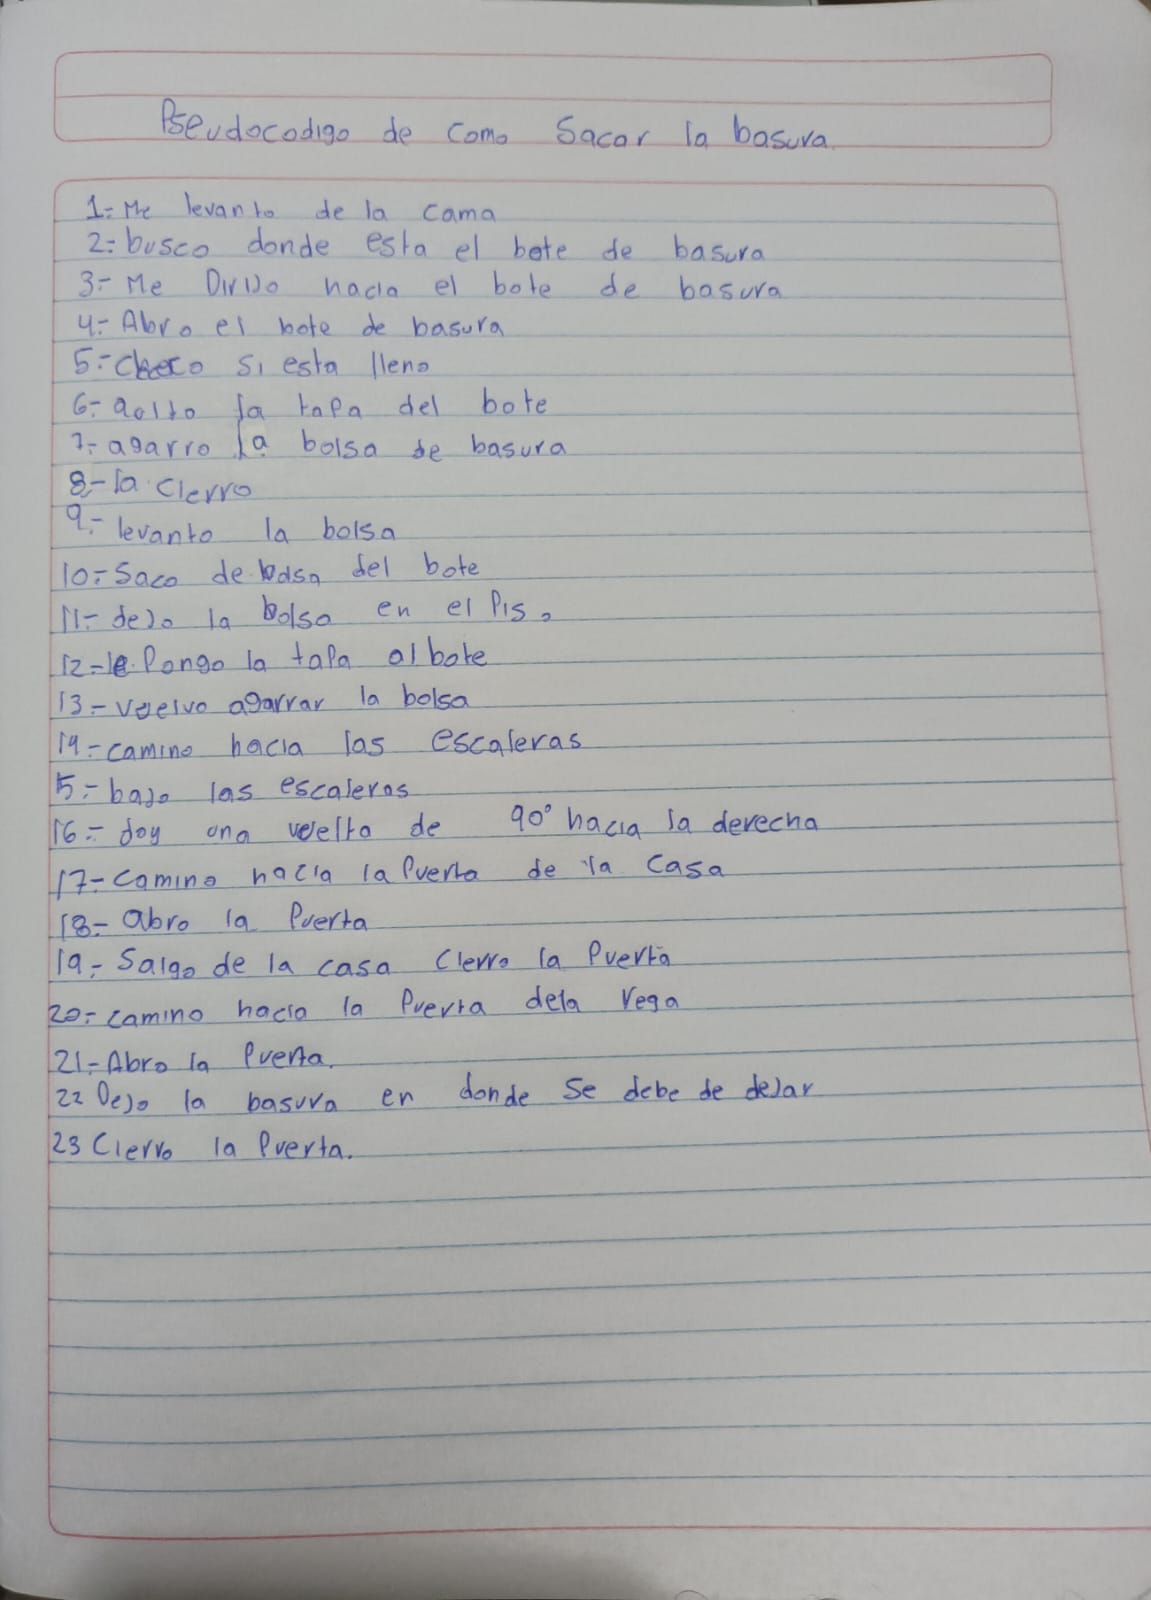 Pseudocodigo de como Sacar la basura
1:- Me levanto de la cama
2:- busco donde esta el bote de basura
3:- Me Dirijo hacia el bote de basura
4:- Abro el bote de basura
5:- checo si esta lleno
6:- la tapa del bote
7:- agarro la bolsa de basura
8.- la cierro
9.- levanto la bolsa
10:- Saco de bolsa del bote
11:- dejo la bolsa en el Piso
12:- le Pongo la tapa al bote
13:- vuelvo agarrar la bolsa
14:- camino hacia las escaleras
15:- bajo las escaleras
16:- doy una vuelta de 90° hacia la derecha
17:- Camino hacia la Puerta de la Casa
18:- abro la Puerta
19:- Salgo de la casa Cierro la Puerta
20:- camino hacia la Puerta dela Vega
21:- Abro la Puerta.
22 Dejo la basura en donde Se debe de dejar
23 Cierro la Puerta.